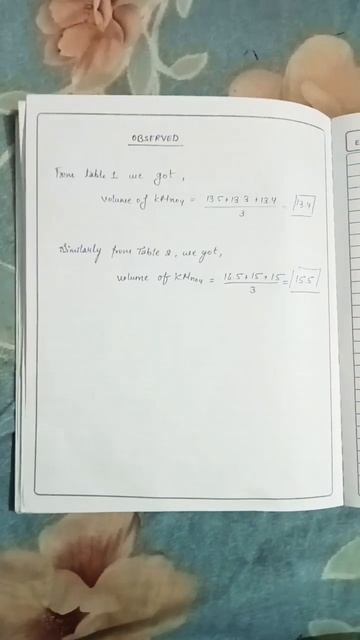 OBSERVED
From table 1 we got,
volume of KMnO4 = 13.5+13.3+13.4 / 3 = 13.4
Similarly from Table 2, we got,
volume of KMnO4 = 16.5+15+15 / 3 = 15.5
E